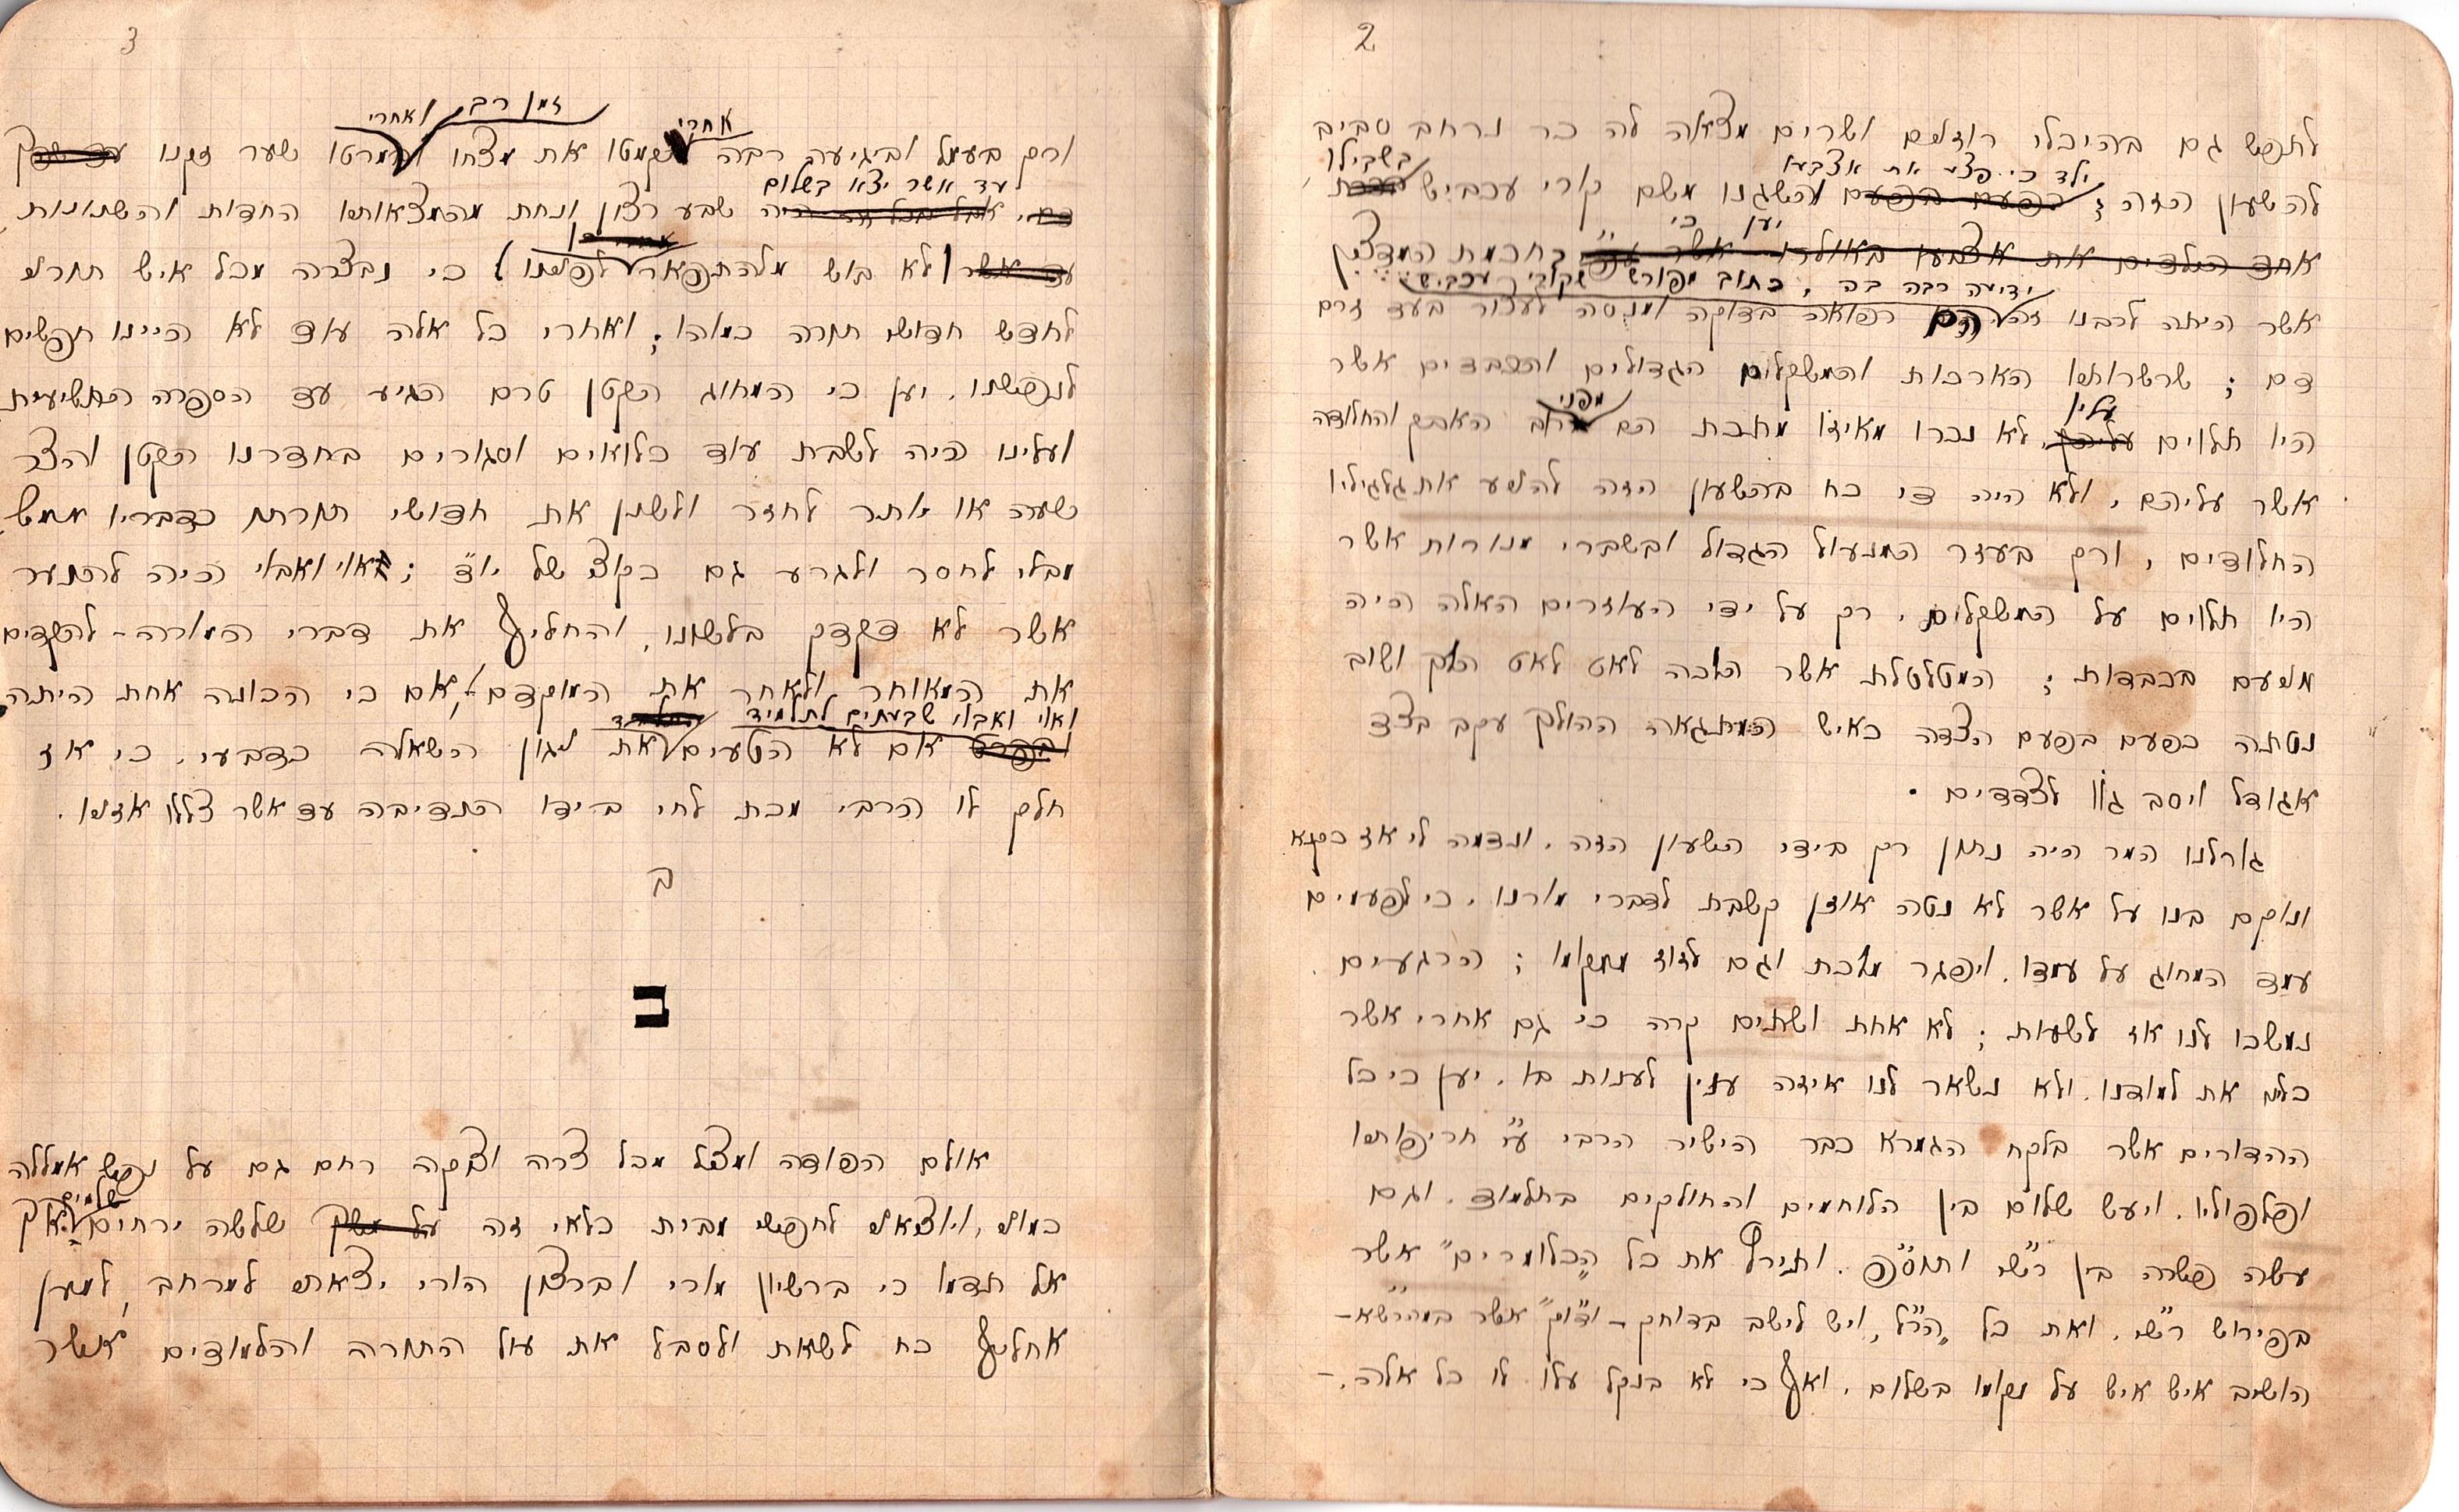 2
לתפש גם בהיכלי רוזנים ושרים מצאה לה כר נרחב סביב
ילד כי פצע את אצבעו
בשבילו
להשעון הזה ; כפעם בפעם והשגנו משם קורי עכביש
יען כי
אחד הילדים את אצבעו באולרו אשר בחכמת המדצין
ידיעה רבה בה, כתוב מפורש שקורי עכביש
אשר היתה לרבנו הם רפואה בדוקה ומנסה לעצור בעד זרם
דם ; שרשרותיו הארכות והמשקלות הגדולים והכבדים אשר
עליו
מפני
היו תלוים עליהן לא נכרו מאיזו מתכת הם האבק והחלודה
אשר עליהם, ולא היה די כח בהשעון הזה להניע את גלגיליו
החלודים, ורק בעזר המנעול הגדול ובשברי מנורות אשר
היו תלוים על המשקלות, רק על ידי העוזרים האלה היה
מניעם בכבדות ; המטלטלת אשר הלכה לאט לאט הלוך ושוב
נטתה כפעם בפעם הצדה כאיש המתגאה ההולך עקב בצד
אגודל ויסב גוו לצדדים .
גורלנו המר היה נתון רק בידי השעון הזה, ונדמה לי אז כקנא
ונוקם בנו על אשר לא נטה אוזן קשבת לדברי מורנו, כי לפעמים
עמד המחוג על עמדו, ויפגר מלכת וגם לזוז ממקומו ; הרגעים
נמשכו לנו אז לשעות ; לא אחת ושתים קרה כי גם אחרי אשר
כלינו את למודנו, ולא נשאר לנו איזה ענין לענות בו, יען כי כל
ההדורים אשר בלקח הגמרא כבר הישיר הרבי ע"י חריפותיו
ופלפוליו, ויעש שלום בין הלוחמים והחולקים בתלמוד, וגם
עשה פשרה בין רש"י ותוס', ותירץ את כל "הכלומרים" אשר
בפירוש רש"י, ואת כל "הנ"ל, ויש לישב בדוחק - ודו"ק" אשר במהרש"א -
הושיב איש איש על מקומו בשלום, ואף כי לא בנקל עלו לו כל אלה, -
3
אחרי
זמן רב
ואחרי
ורק בעמל וביגיעה רבה נקמטו את מצחו ונמרטו שער זקנו
עד אשר יצא בשלום
אבל בכל זה היה שבע רצון ונחת מהמצאותיו החדות והשנונות
עד אשר לא בוש מלהתפאר לפנינו כי נבצרה מכל איש תורני
לחדש חדושי תורה כמוהו ; ואחרי כל אלה עוד לא היינו חפשים
לנפשנו, יען כי המחוג הקטן טרם הגיע עד הספרה התשיעית
ועלינו היה לשבת עוד כלואים וסגורים בחדרנו הקטן והצר
שעה או יותר לחזר ולשנן את חדושי תורתו כדבריו ממש
מבלי לחסר ולגרע גם כקוצו של יו"ד ; אוי ואבוי היה להנער
אשר לא דקדק בלשונו, והחליף את דברי המורה - להקדים
את המאוחר ולאחר את המוקדם, אם כי הכונה אחת היתה
ואוי ואבוי שבעתים לתלמיד
ובפרט אם לא הטעים את נגון השאלה כדבעי, כי אז
חלק לו הרבי מכת לחי בידו הנדיבה עד אשר צללו אזניו .
ב
ב
אולם הפודה ומציל מכל צרה וצוקה רחם גם על נפש אמללה
שלמים
כמוני, ויוציאני לחפשי מבית כלאי זה על משך שלשה ירחים, אך
אל תדמו כי ברשיון מורי וברצון הורי יצאתי למרחב, למען
אחליף כח לשאת ולסבל את עול התורה והלמודים אשר